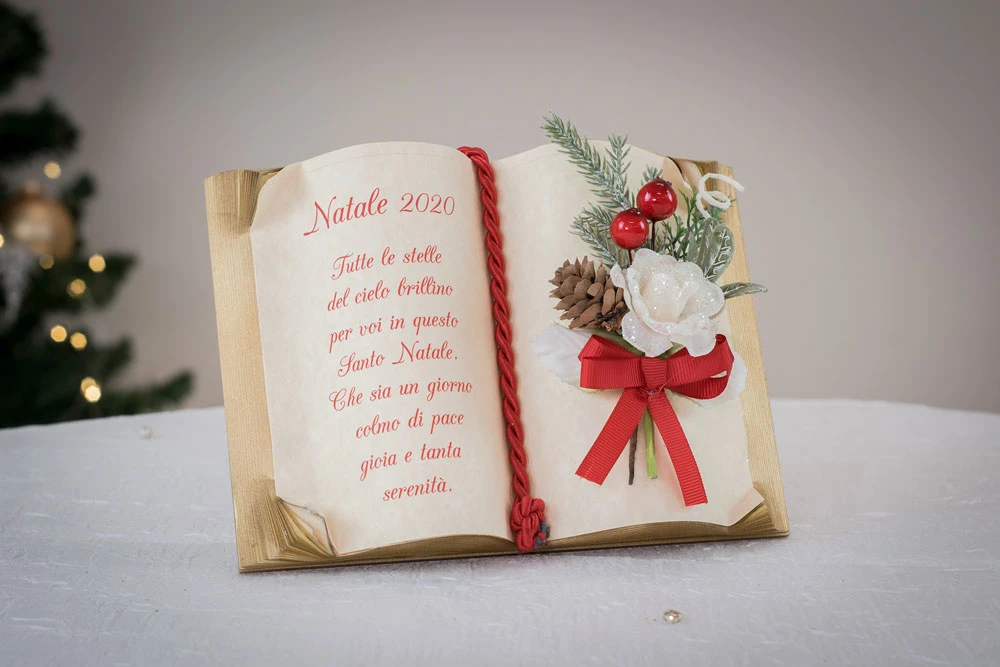 Natale 2020
Tutte le stelle
del cielo brillino
per voi in questo
Santo Natale.
Che sia un giorno
colmo di pace
gioia e tanta
serenità.